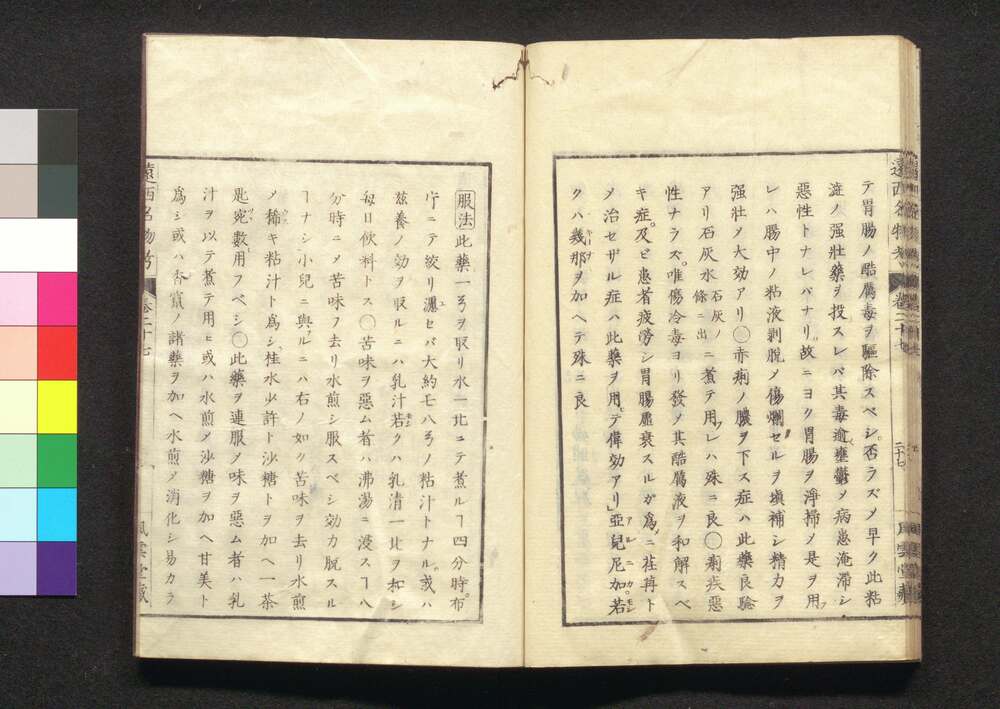 テ胃腸ノ酷厲毒ヲ驅除スベシ否ラズメ早ク此粘
澁ノ强壯藥ヲ投スレバ其毒逾壅鬱メ病患淹滯シ
惡性トナレバナリ故ニヨク胃腸ヲ淨掃メ是ヲ用
レハ腸中ノ粘液剥脫メ傷爛セルヲ塡補シ精力ヲ
强壯メ大効アリ○赤痢ノ膿ヲ下ス症ハ此藥良驗
アリ石灰水石灰ノ條ニ出ニ煮テ用フレハ殊ニ良○痢疾惡
性ナラズ唯傷冷毒ヨリ發メ其酷厲液ヲ和解スベ
キ症及ビ患者疲勞シ胃腸虛衰スルガ爲ニ荏苒ト
メ治セザル症ハ此藥ヲ用テ偉効アリ亞兒尼加若
クハ幾那ヲ加ヘテ殊ニ良
遠西名物考 卷二十七 風雲堂藏
服法此藥一ヲ取リ水一比ニテ煮ルヿ四分時布
ニテ絞リ濾セバ大約七八ノ粘汁トナル或ハ
玆養ノ効ヲ取ルニハ乳汁若クハ乳清一比ヲ和シ
每日飮料トス○苦味ヲ惡ム者ハ沸湯ニ浸スヿ八
分時ニメ苦味フ去リ水煎シ服スベシ効力脫スル
ヿナシ小兒ニ與フルニハ右ノ如ク苦味ヲ去リ水煎
メ稀キ粘汁ト爲シ桂水少許ト沙糖トヲ加ヘ一茶
匙宛數用フベシ○此藥ヲ連服メ味ヲ惡ム者ハ乳
汁ヲ以テ煮テ用ヒ或ハ水煎メ沙糖ヲ加ヘ甘美ト
爲シ或ハ香竄ノ諸藥ヲ加ヘ水煎メ消化シ易カラ
遠西名物考 卷二十七 風雲堂藏